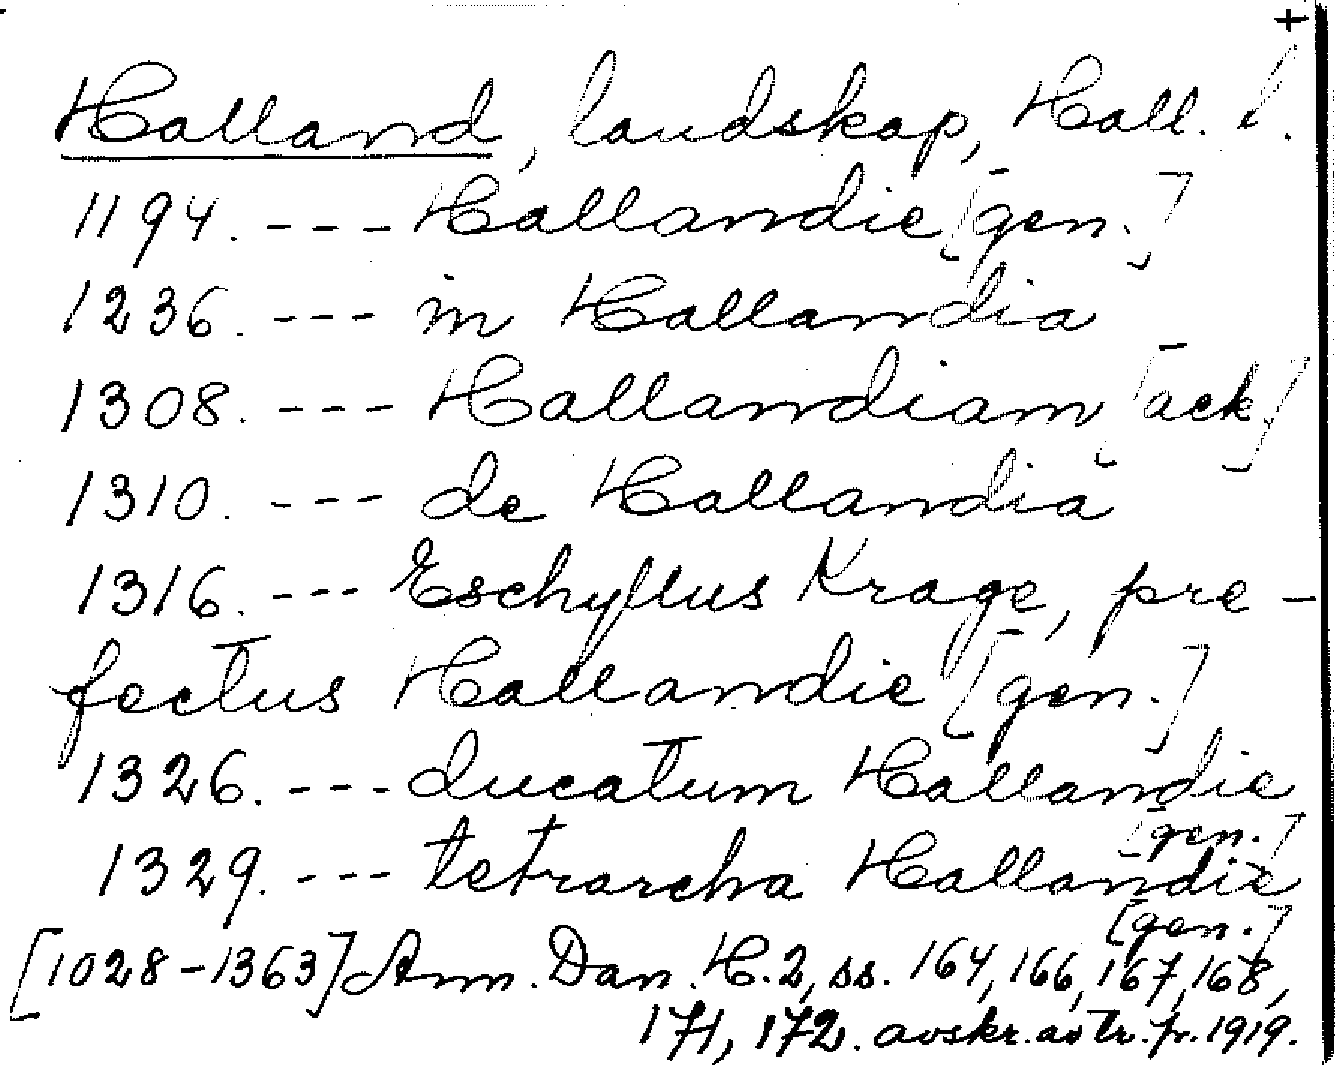 +
Halland, landskap, Hall. l.
1194. --- Hallandie [gen.]
1236. --- in Hallandia
1308. --- Hallandiam [ack]
1310. --- de Hallandia
1316. --- Eschyllus Krage, pre-
fectus Hallandie [gen.]
1326. --- ducatum Hallandie
[gen.]
1329. --- tetrarcha Hallandie
[gen.]
[1028-1363] Ann. Dan. H. 2, ss. 164, 166, 167, 168,
171, 172. avskr. av tr. fr. 1919.